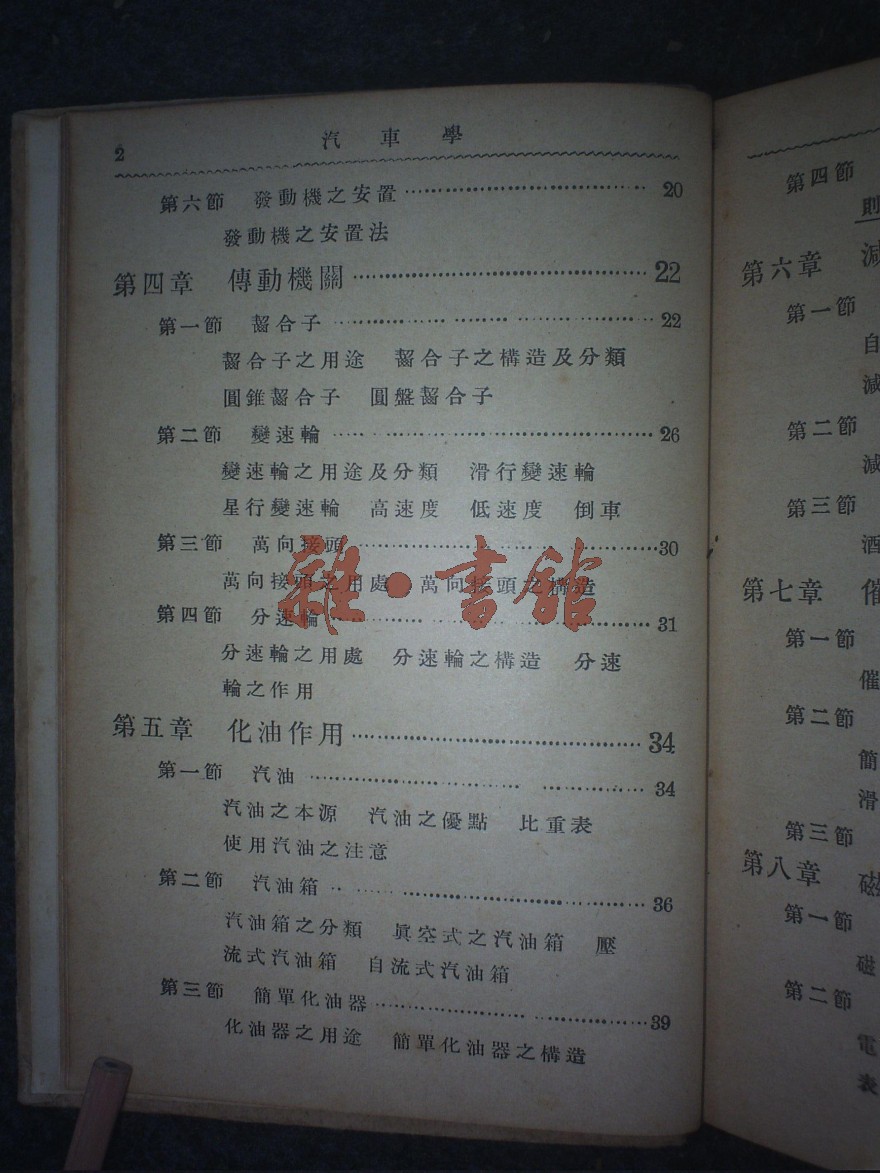 2
汽車學
第六節 發動機之安置 20
發動機之安置法
第四章 傳動機關 22
第一節 齧合子 22
齧合子之用途 齧合子之構造及分類
圓錐齧合子 圓盤齧合子
第二節 變速輪 26
變速輪之用途及分類 滑行變速輪
星行變速輪 高速度 低速度 倒車
第三節 萬向接頭 30
萬向接頭之用處 萬向接頭之構造
第四節 分速輪 31
分速輪之用處 分速輪之構造 分速
輪之作用
第五章 化油作用 34
第一節 汽油 34
汽油之本源 汽油之優點 比重表
使用汽油之注意
第二節 汽油箱 36
汽油箱之分類 眞空式之汽油箱 壓
流式汽油箱 自流式汽油箱
第三節 簡單化油器 39
化油器之用途 簡單化油器之構造
雜·書館
第四節
則
第六章 減
第一節
自
減
第二節
減
第三節
酒
第七章 催
第一節
催
第二節
簡
滑
第三節
第八章 磁
第一節
磁
第二節
電
表